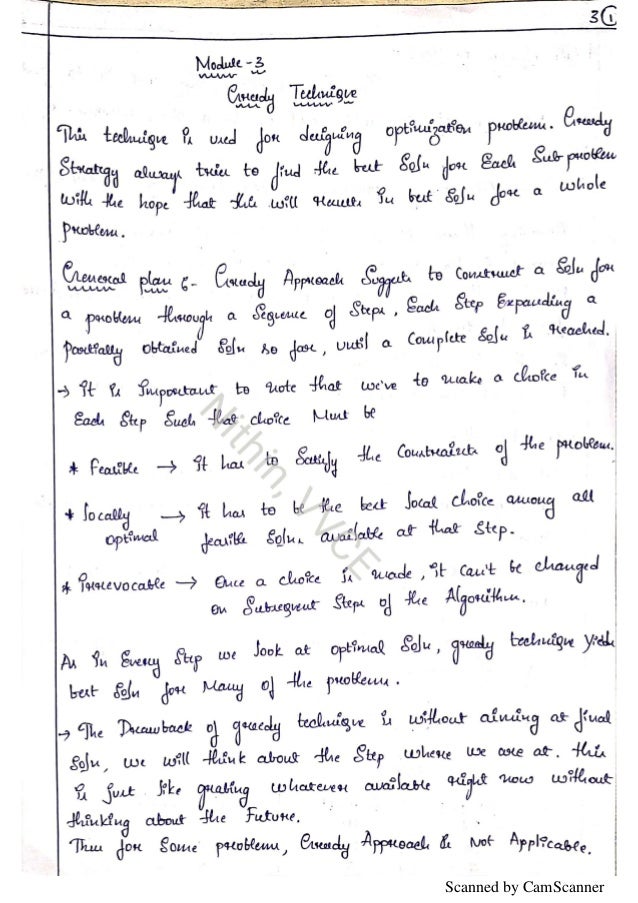 3①
Module-3
Greedy Technique
This technique is used for designing optimization problem. Greedy
Strategy always tries to find the best Soln for Each Sub problem
with the hope that this will result in best soln for a whole
problem.
General plan :- Greedy Approach Suggests to construct a Soln for
a problem through a sequence of steps, Each Step Expanding a
partially obtained soln so far, until a complete soln is reached.
→ it is important to note that we've to make a choice in
Each Step Such that choice Must be
* Feasible → it has to satisfy the constraints of the problem.
* Locally → it has to be the best local choice among all
optimal feasible solns available at that step.
* Irrevocable → Once a choice is made, it can't be changed
on Subsequent Steps of the Algorithm.
As in Every Step we look at optimal Soln, greedy technique yields
best soln for Many of the problems.
→ The Drawback of greedy technique is without aiming at final
Soln, we will think about the Step where we are at. this
is just like grabing whatever available right now without
thinking about the Future.
Thus for Some problems, Greedy Approach is Not Applicable.
Nithin, VVCE
Scanned by CamScanner